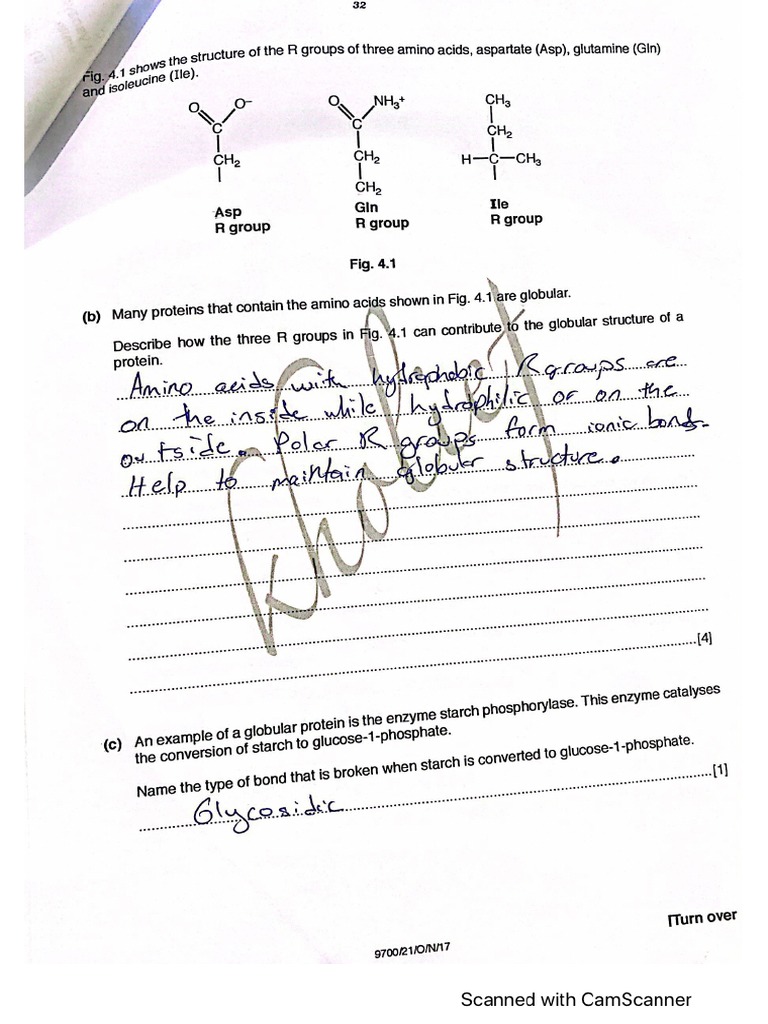 32
Fig. 4.1 shows the structure of the R groups of three amino acids, aspartate (Asp), glutamine (Gln)
and isoleucine (Ile).
O O– O NH3+ CH3
C C CH2
CH2 CH2 H–C–CH3
CH2
Asp Gln Ile
R group R group R group
Fig. 4.1
(b) Many proteins that contain the amino acids shown in Fig. 4.1 are globular.
Describe how the three R groups in Fig. 4.1 can contribute to the globular structure of a
protein.
Amino acids with hydrophobic R groups are
on the inside while hydrophilic or on the
outside. Polar R groups form ionic bonds.
Help to maintain globular structure.
[4]
(c) An example of a globular protein is the enzyme starch phosphorylase. This enzyme catalyses
the conversion of starch to glucose-1-phosphate.
Name the type of bond that is broken when starch is converted to glucose-1-phosphate.
Glycosidic [1]
[Turn over
9700/21/O/N/17
Scanned with CamScanner